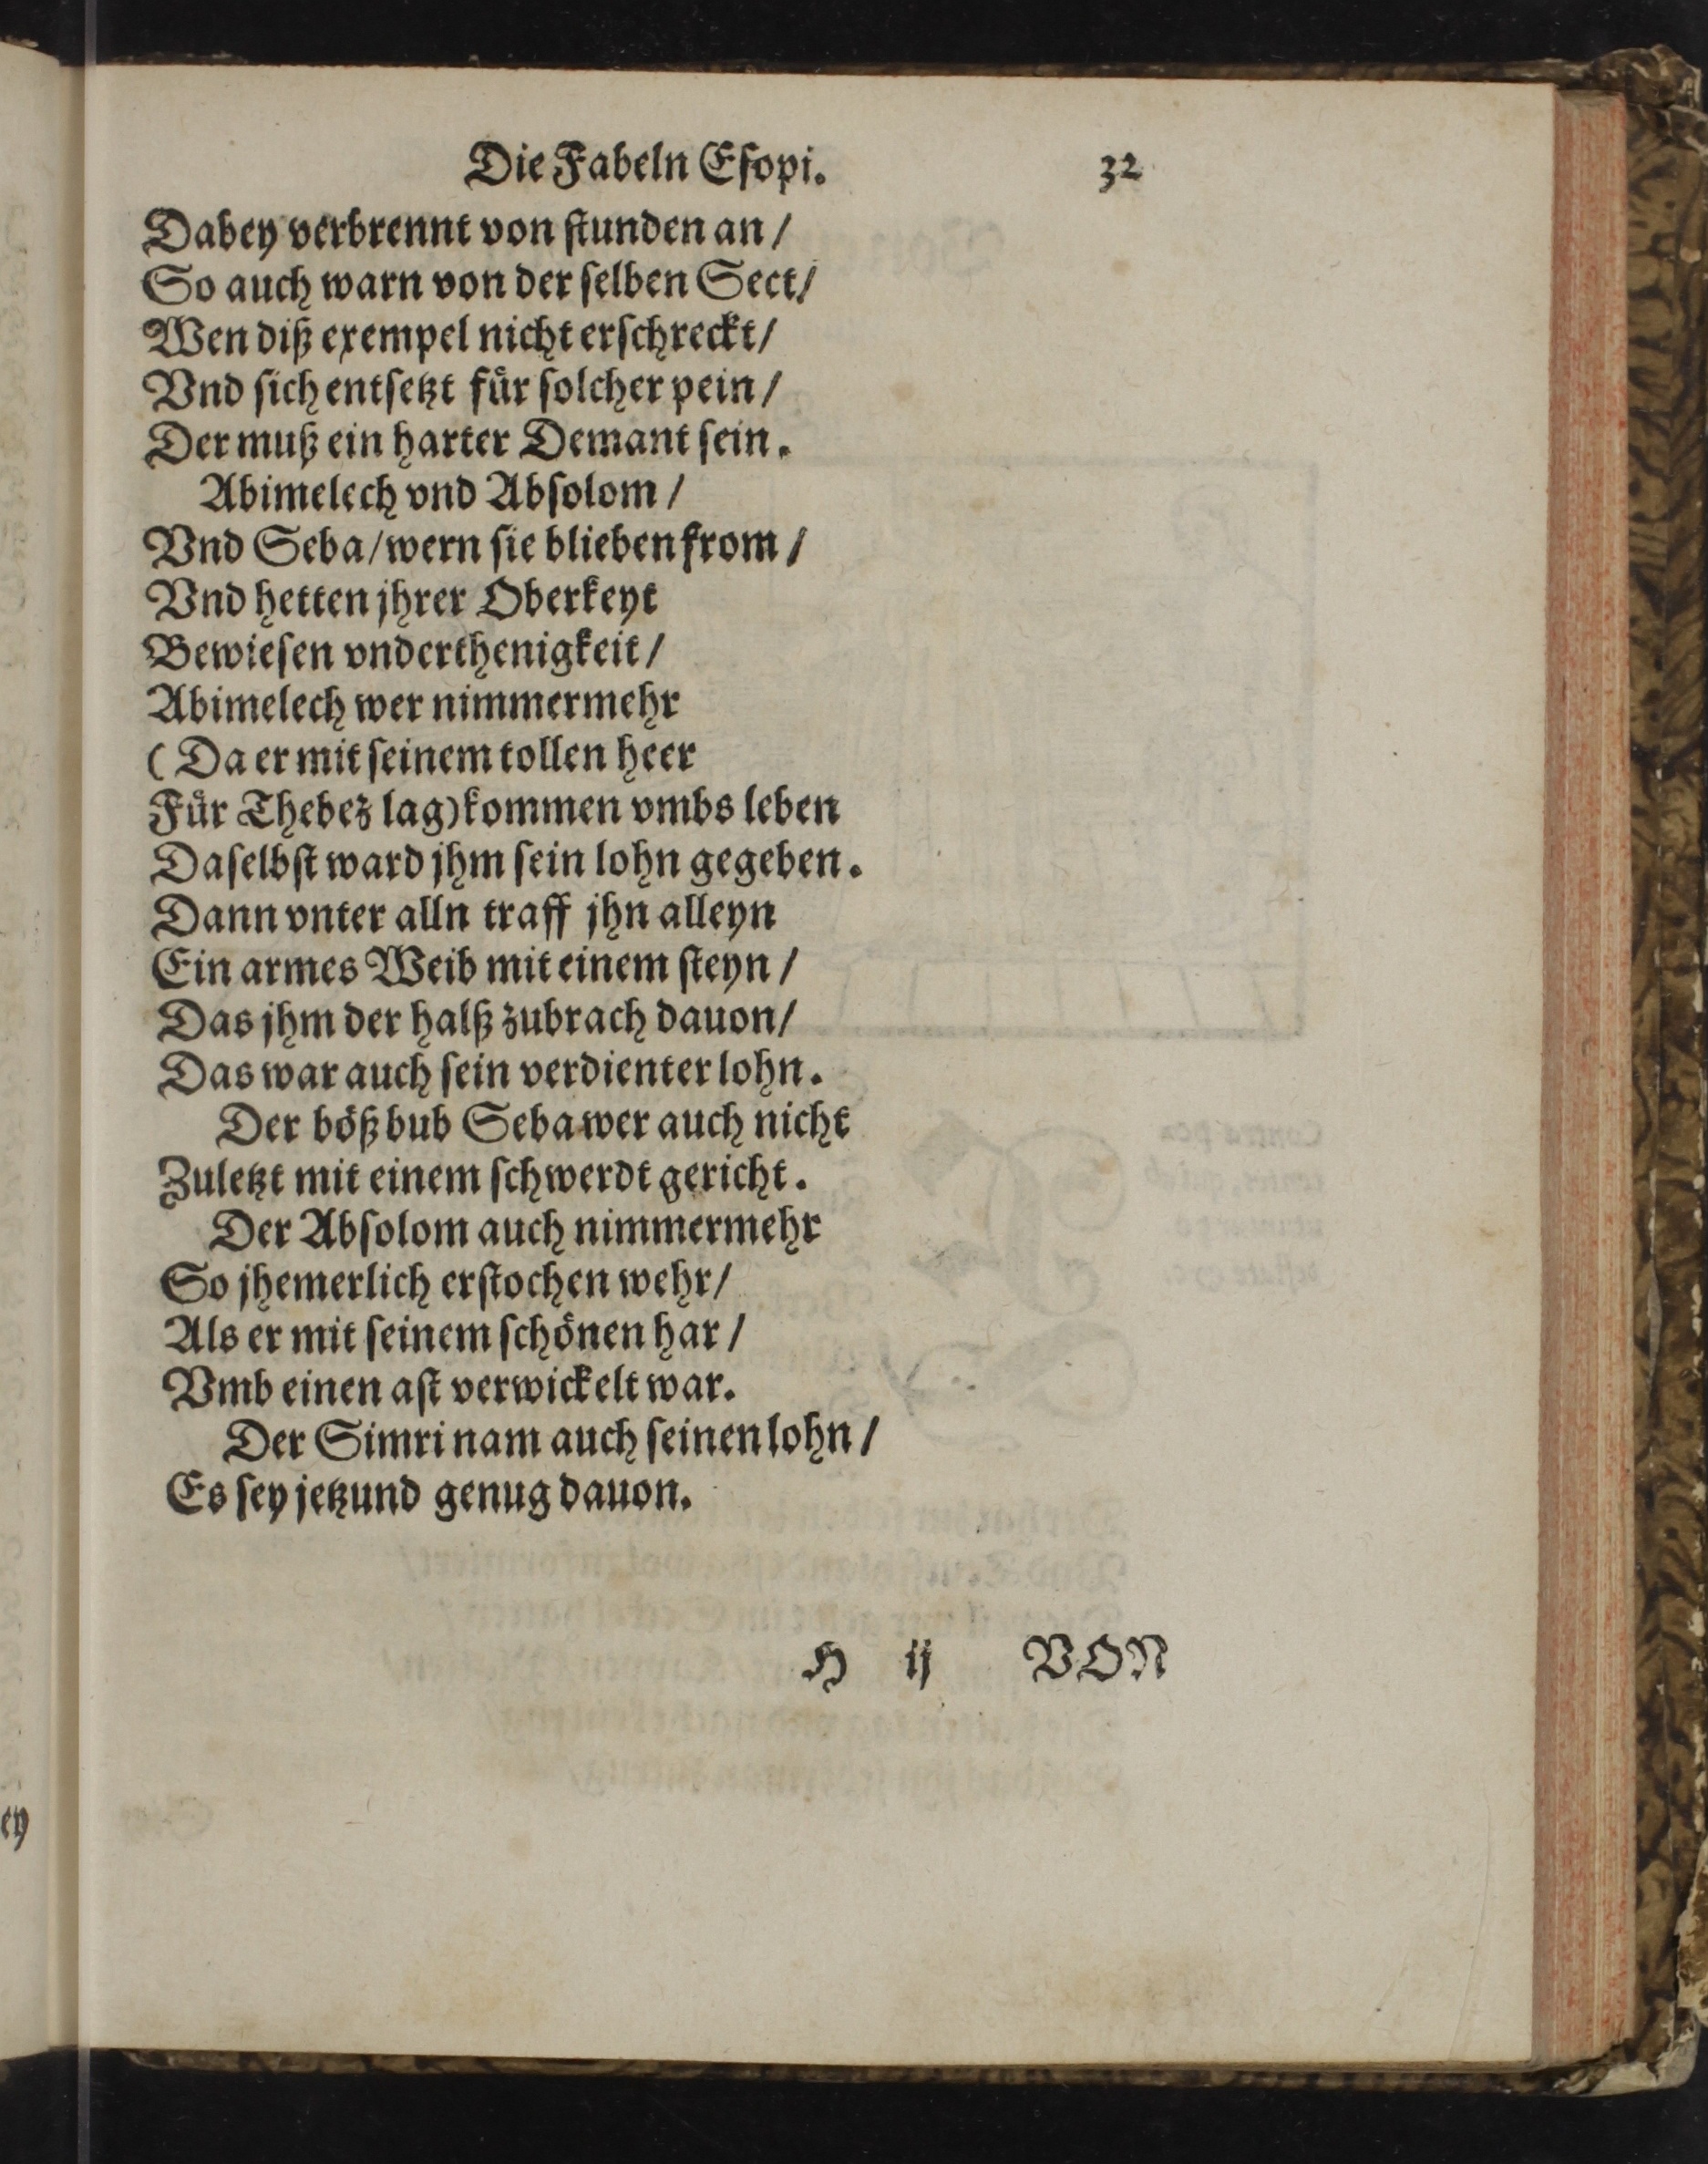 Die Fabeln Eſopi. 32
Dabey verbrennt von ſtunden an /
So auch warn von der ſelben Sect /
Wen diß exempel nicht erſchreckt /
Vnd ſich entſetzt fuͤr ſolcher pein /
Der muß ein harter Demant ſein.
Abimelech vnd Abſolom /
Vnd Seba / wern ſie blieben from /
Vnd hetten jhrer Oberkeyt
Bewieſen vnderthenigkeit /
Abimelech wer nimmermehr
( Da er mit ſeinem tollen heer
Fuͤr Thebez lag) kommen vmbs leben
Daſelbſt ward jhm ſein lohn gegeben.
Dann vnter alln traff jhn alleyn
Ein armes Weib mit einem ſteyn /
Das jhm der halß zubrach dauon /
Das war auch ſein verdienter lohn.
Der boͤß bub Seba wer auch nicht
Zuletzt mit einem ſchwerdt gericht.
Der Abſolom auch nimmermehr
So jhemerlich erſtochen wehr /
Als er mit ſeinem ſchoͤnen har /
Vmb einen aſt verwickelt war.
Der Simri nam auch ſeinen lohn /
Es ſey jetzund genug dauon.
H ij VON
ey